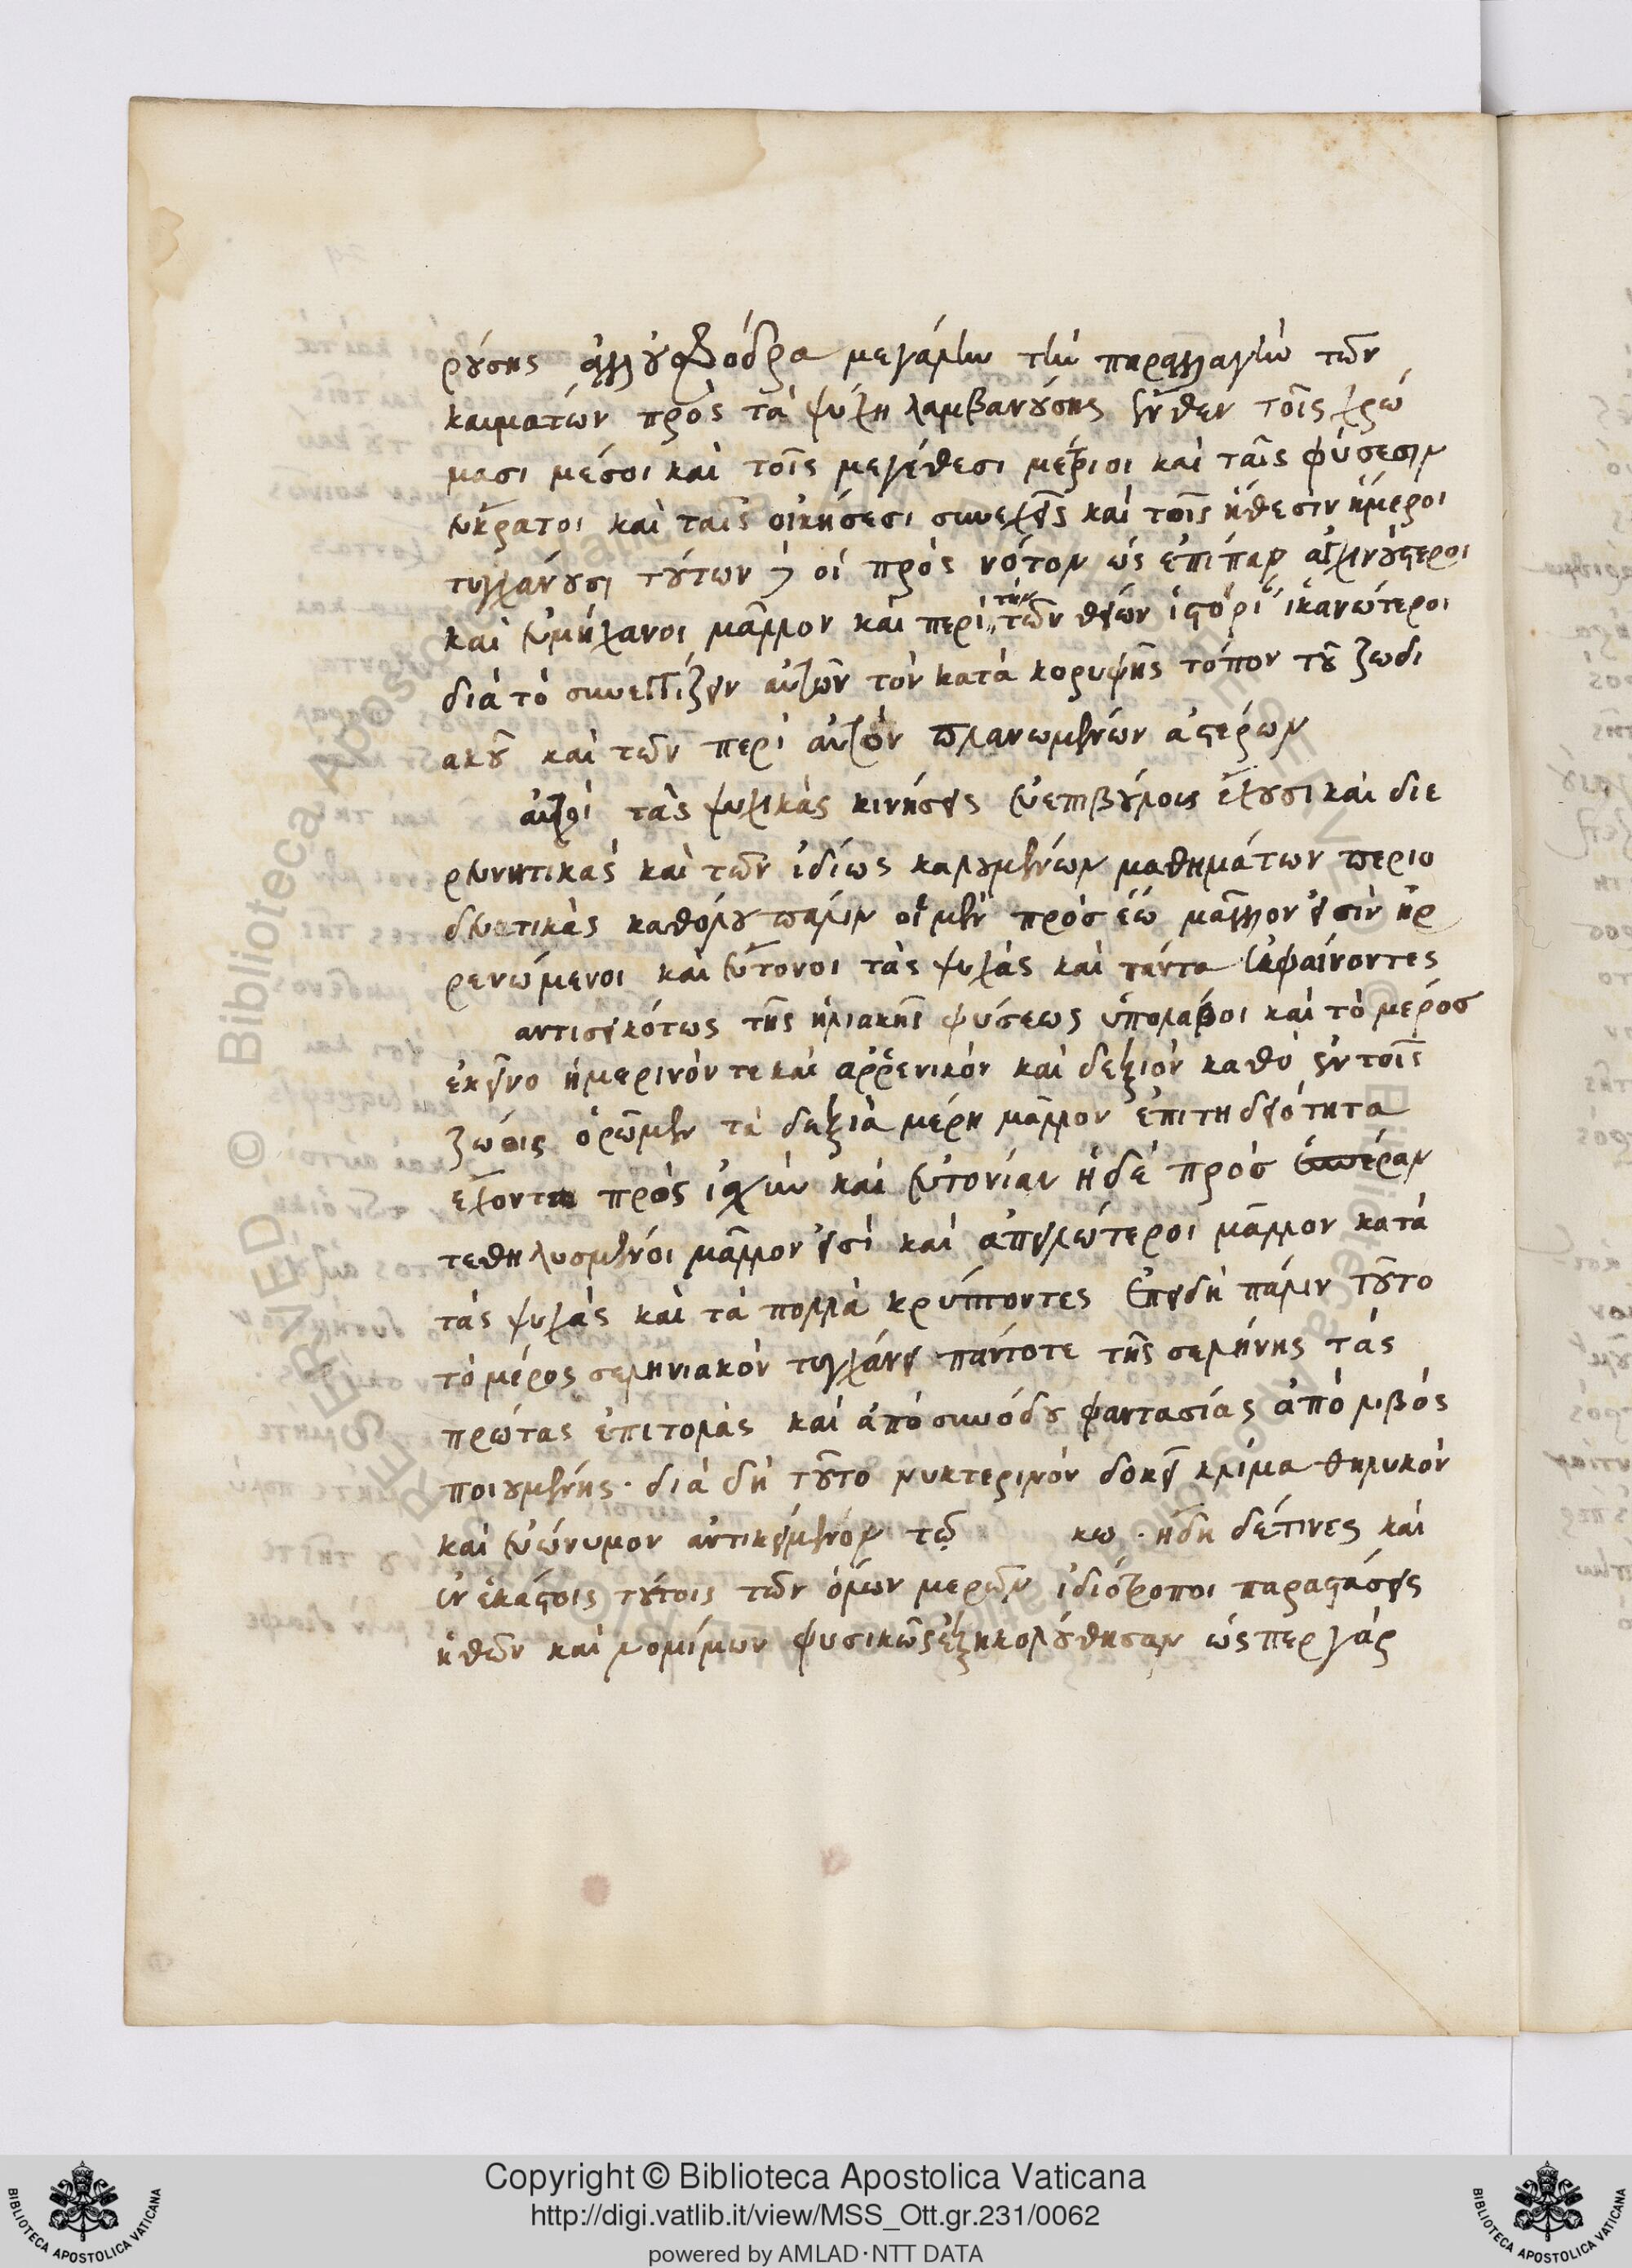 ρούσης ἀλλ' οὐ σφόδρα μεγάλην τὴν παραλλαγὴν τῶν
καυματών πρὸς τὰ ψύχη λαμβανούσης ἔνθεν τοῖς χρώ
μασι μέσοι καὶ τοῖς μεγέθεσι μέτριοι καὶ ταῖς φύσεσιν
εὔκρατοι καὶ ταῖς οἰκήσεσι συνεχεῖς καὶ τοῖς ἤθεσιν ἥμεροι
τυγχάνουσι τούτων δὲ οἱ πρὸς νότον ὡς ἐπίπαν ἀγχινούστεροι
καὶ εὐμήχανοι μᾶλλον καὶ περὶ τὴν τῶν θείων ἱστορί ἱκανώτεροι
διὰ τὸ συνεγγίζειν αὐτῶν τὸν κατὰ κορυφῆς τόπον τοῦ ζωδι
ακοῦ καὶ τῶν περὶ αὐτὸν πλανωμένων ἀστέρων
αὐτοὶ τὰς ψυχικὰς κινήσεις εὐεπιβούλους ἔχουσι καὶ διε
ρευνητικὰς καὶ τῶν ἰδίως καλουμένων μαθημάτων περιο
δευτικὰς καθόλου πάλιν οἱ μὲν πρὸς ἕω μᾶλλον εἰσὶν ἠρ
ρενώμενοι καὶ εὔτονοι τὰς ψυχὰς καὶ πάντα ἐκφαίνοντες
αντισεικότως τῆς ἡλιακῆς φύσεως ὑπολάβοι καὶ τὸ μέρος
ἐκεῖνο ἡμερινόν τε καὶ ἀῤῥενικὸν καὶ δεξιὸν καθὸ ἐν τοῖς
ζώοις ὁρῶμεν τὰ δεξιὰ μέρη μᾶλλον ἐπιτηδειότητα
ἔχοντα πρὸς ἰσχὺν καὶ εὐτονίαν ἡ δὲ πρὸς ἑσπέραν
τεθηλυσμένοι μᾶλλον εἰσὶ καὶ ἁπαλώτεροι μᾶλλον κατὰ
τὰς ψυχὰς καὶ τὰ πολλὰ κρύπτοντες ἐπειδὴ πάλιν τοῦτο
τὸ μέρος σεληνιακὸν τυγχάνει πάντοτε τῆς σελήνης τὰς
πρώτας ἐπιτολὰς καὶ ἀπὸ συνόδου φαντασίας ἀπὸ λιβὸς
ποιουμένης. διὰ δὴ τοῦτο νυκτερινὸν δοκεῖ κλίμα θηλυκὸν
καὶ εὐώνυμον ἀντικείμενον τῷ κῳ. ἤδη δέ τινες καὶ
ἐν ἑκάστοις τούτοις τῶν ὅλων μερῶν ἰδιότροποι παραστάσεις
ἠθῶν καὶ νομίμων φυσικῶς ἐξηκολούθησαν ὥσπερ γάρ
Copyright © Biblioteca Apostolica Vaticana
http://digi.vatlib.it/view/MSS_Ott.gr.231/0062
powered by AMLAD·NTT DATA